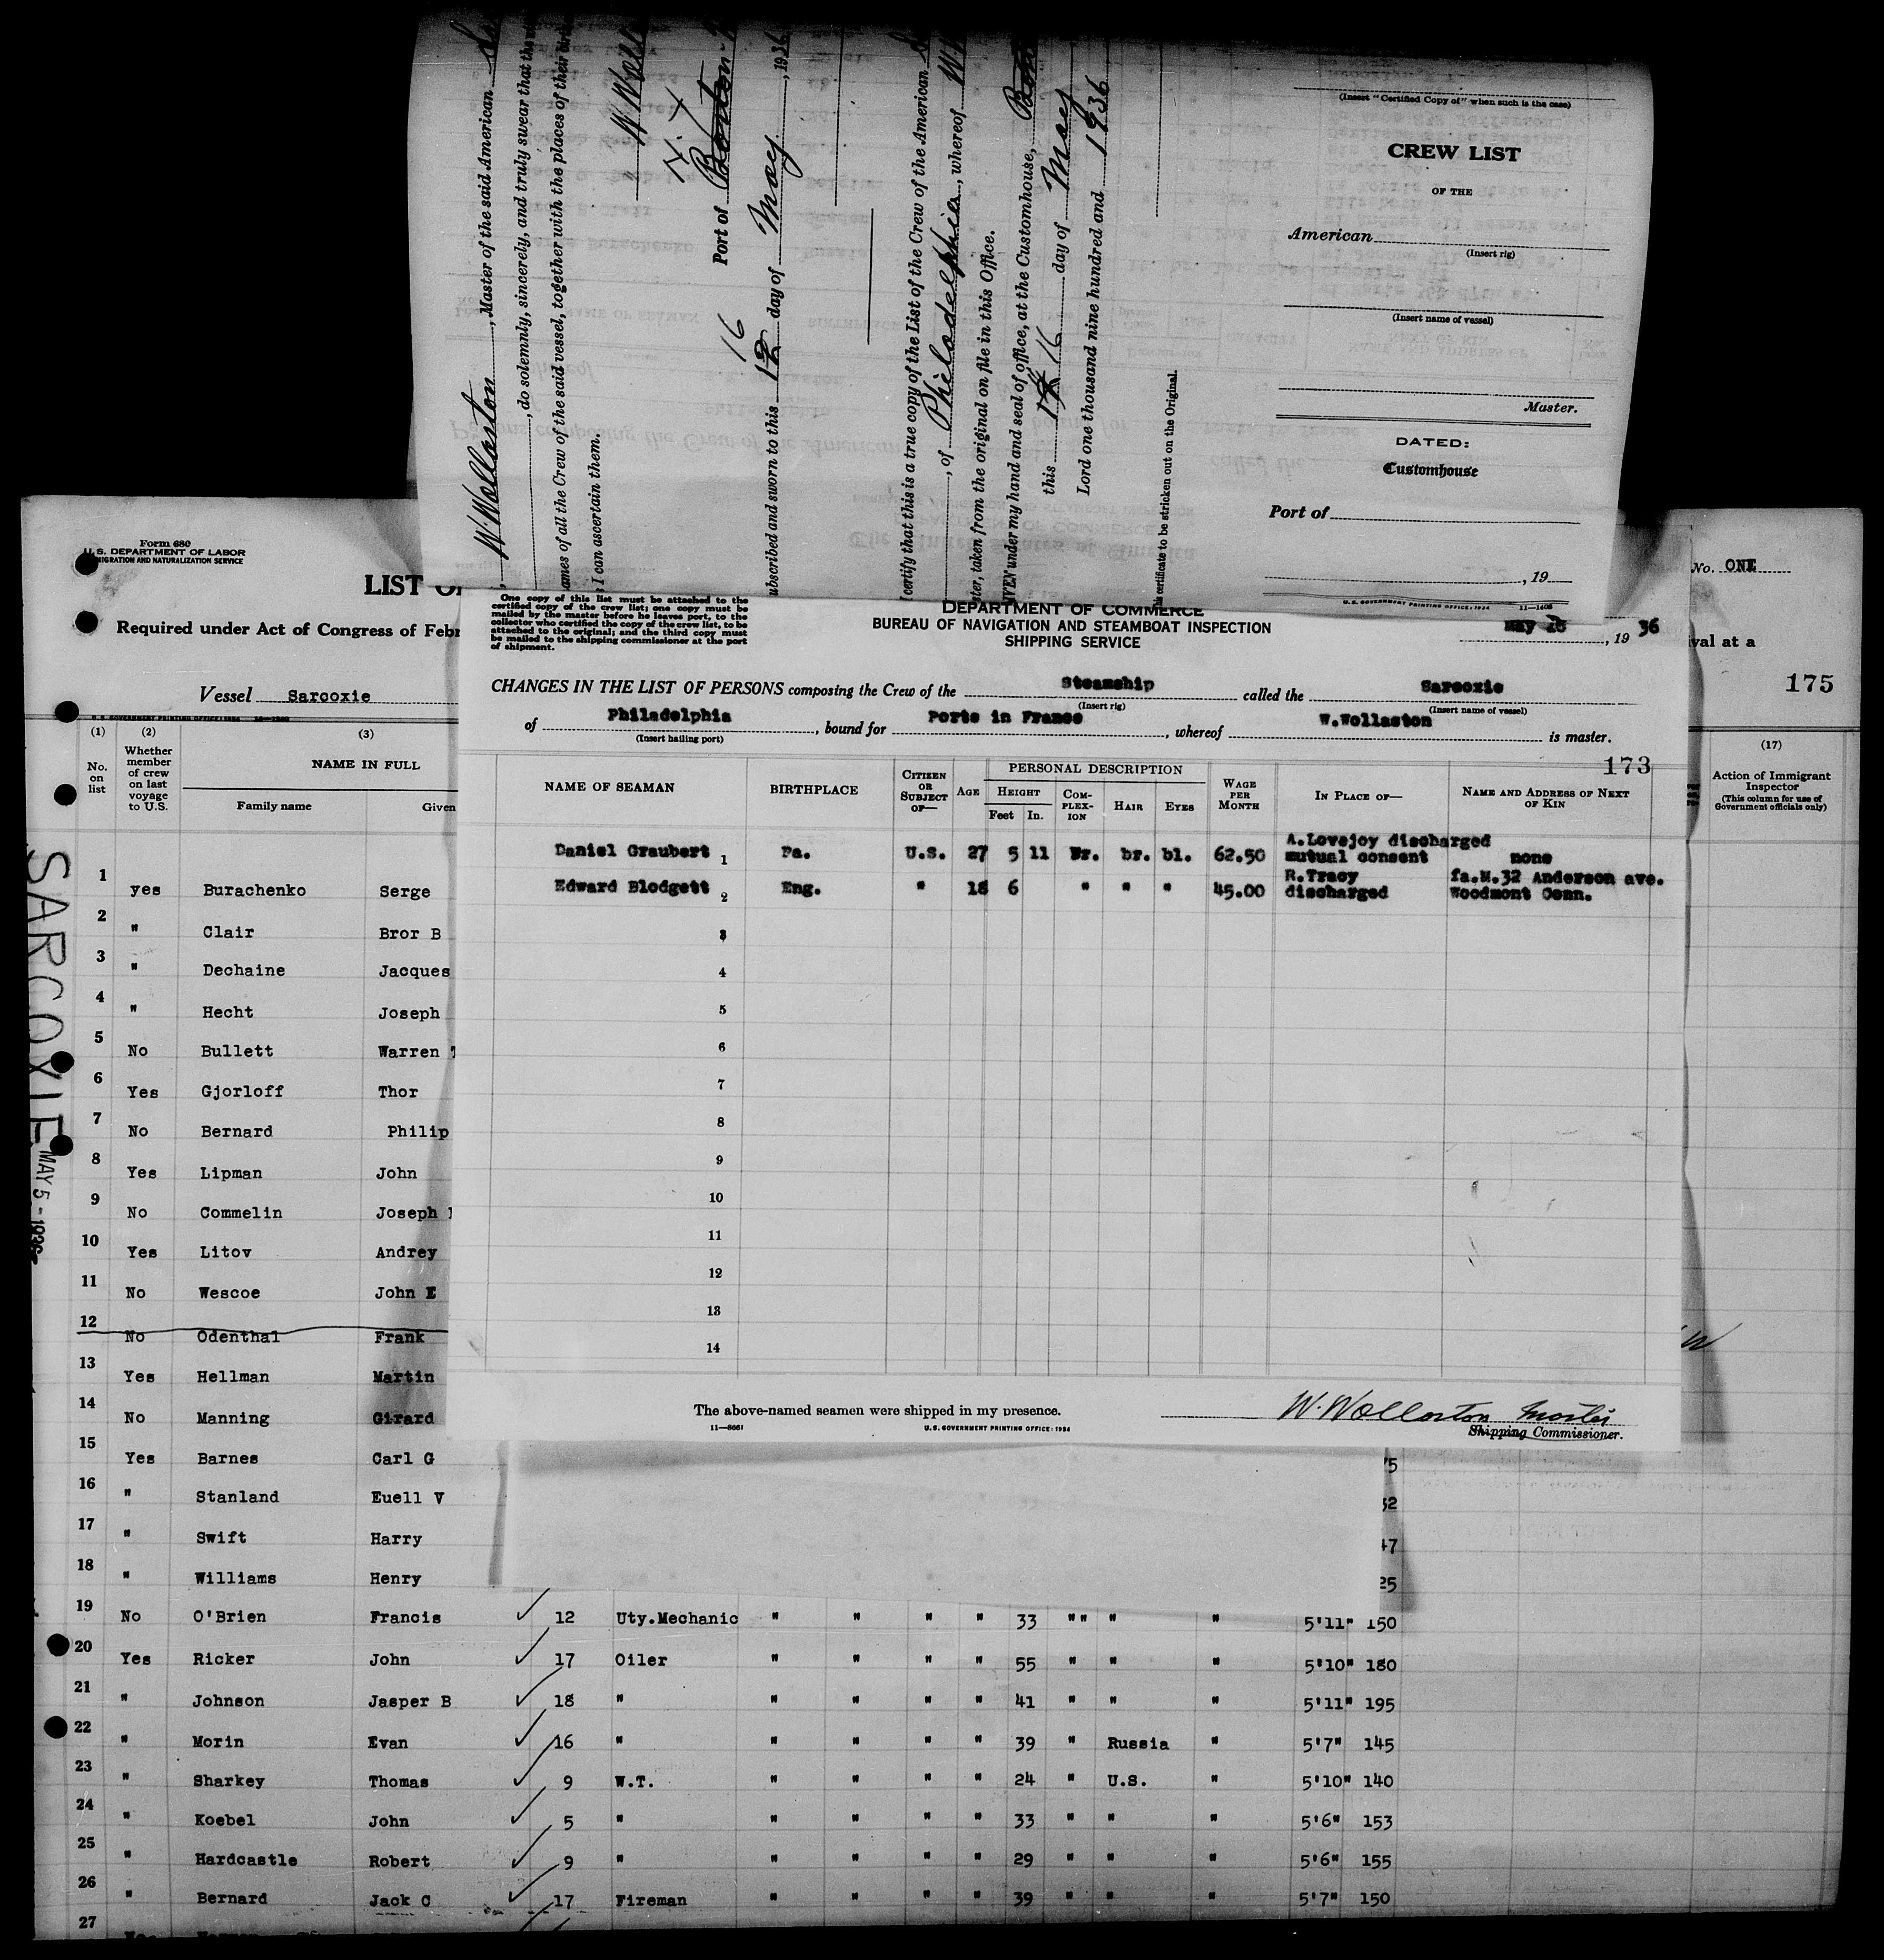 (Insert "Certified Copy of" when such is the case)
CREW LIST
OF THE
American
(Insert rig)
(Insert name of vessel)
Master.
DATED:
Customhouse
Port of
, 19
U.S. GOVERNMENT PRINTING OFFICE: 1934 11—1408
W. Wollaston, Master of the said American
, do solemnly, sincerely, and truly swear that the
ames of all the Crew of the said vessel, together with the places of their
s I can ascertain them.
W Woll
N.Y
Port of Boston
16
ubscribed and sworn to this 12 day of May, 1936
I certify that this is a true copy of the List of the Crew of the American
, of Philadelphia, whereof W.
ster, taken from the original on file in this Office.
IVEN under my hand and seal of office, at the Customhouse,
this 16 day of May
Lord one thousand nine hundred and 1936
his certificate to be stricken out on the Original.
Form 680
U.S. DEPARTMENT OF LABOR
MIGRATION AND NATURALIZATION SERVICE
LIST O
Required under Act of Congress of Febr
Vessel Sarcoxie
No. ONE
val at a
175
One copy of this list must be attached to the
certified copy of the crew list; one copy must be
mailed by the master before he leaves port, to the
collector who certified the copy of the crew list, to be
attached to the original; and the third copy must
be mailed to the shipping commissioner at the port
of shipment.
DEPARTMENT OF COMMERCE
BUREAU OF NAVIGATION AND STEAMBOAT INSPECTION
SHIPPING SERVICE
May 16, 19 36
CHANGES IN THE LIST OF PERSONS composing the Crew of the Steamship called the Sarcoxie
(Insert rig) (Insert name of vessel)
of Philadelphia, bound for Ports in France, whereof W.Wollaston is master.
(Insert hailing port)
173
NAME OF SEAMAN BIRTHPLACE CITIZEN OR SUBJECT OF— AGE PERSONAL DESCRIPTION HEIGHT Feet In. COMPLEXION HAIR EYES WAGE PER MONTH IN PLACE OF— NAME AND ADDRESS OF NEXT OF KIN
Daniel Graubert 1 Pa. U.S. 27 5 11 br. bl. 62.50 A.Lovejoy discharged mutual consent none
Edward Blodgett 2 Eng. " 18 6 " " " 45.00 R.Tracy discharged fa.M.32 Anderson ave. Woodmont Conn.
3
4
5
6
7
8
9
10
11
12
13
14
The above-named seamen were shipped in my presence.
W. Wollaston Master
Shipping Commissioner.
11—8661 U.S. GOVERNMENT PRINTING OFFICE: 1934
SARCOXIE
MAY 5 - 1936
(1) (2) (3) (17)
No. on list Whether member of crew on last voyage to U.S. NAME IN FULL Family name Given
Action of Immigrant Inspector
(This column for use of Government officials only)
1 yes Burachenko Serge
2 " Clair Bror B
3 " Dechaine Jacques
4 " Hecht Joseph
5 No Bullett Warren
6 Yes Gjorloff Thor
7 No Bernard Philip
8 Yes Lipman John
9 No Commelin Joseph
10 Yes Litov Andrey
11 No Wescoe John E
12 No Odenthal Frank
13 Yes Hellman Martin
14 No Manning Girard
15 Yes Barnes Carl G
16 " Stanland Euell V
17 " Swift Harry
18 " Williams Henry
19 No O'Brien Francis 12 Uty.Mechanic " " " " 33 " " " " 5'11" 150
20 Yes Ricker John 17 Oiler " " " " 55 " " " 5'10" 180
21 " Johnson Jasper B 18 " " " " " 41 " " " 5'11" 195
22 " Morin Evan 16 " " " " " 39 " Russia " 5'7" 145
23 " Sharkey Thomas 9 W.T. " " " " 24 " U.S. " 5'10" 140
24 " Koebel John 5 " " " " " 33 " " " 5'6" 153
25 " Hardcastle Robert 9 " " " " " 29 " " " 5'6" 155
26 " Bernard Jack C 17 Fireman " " " " 39 " " " 5'7" 150
27